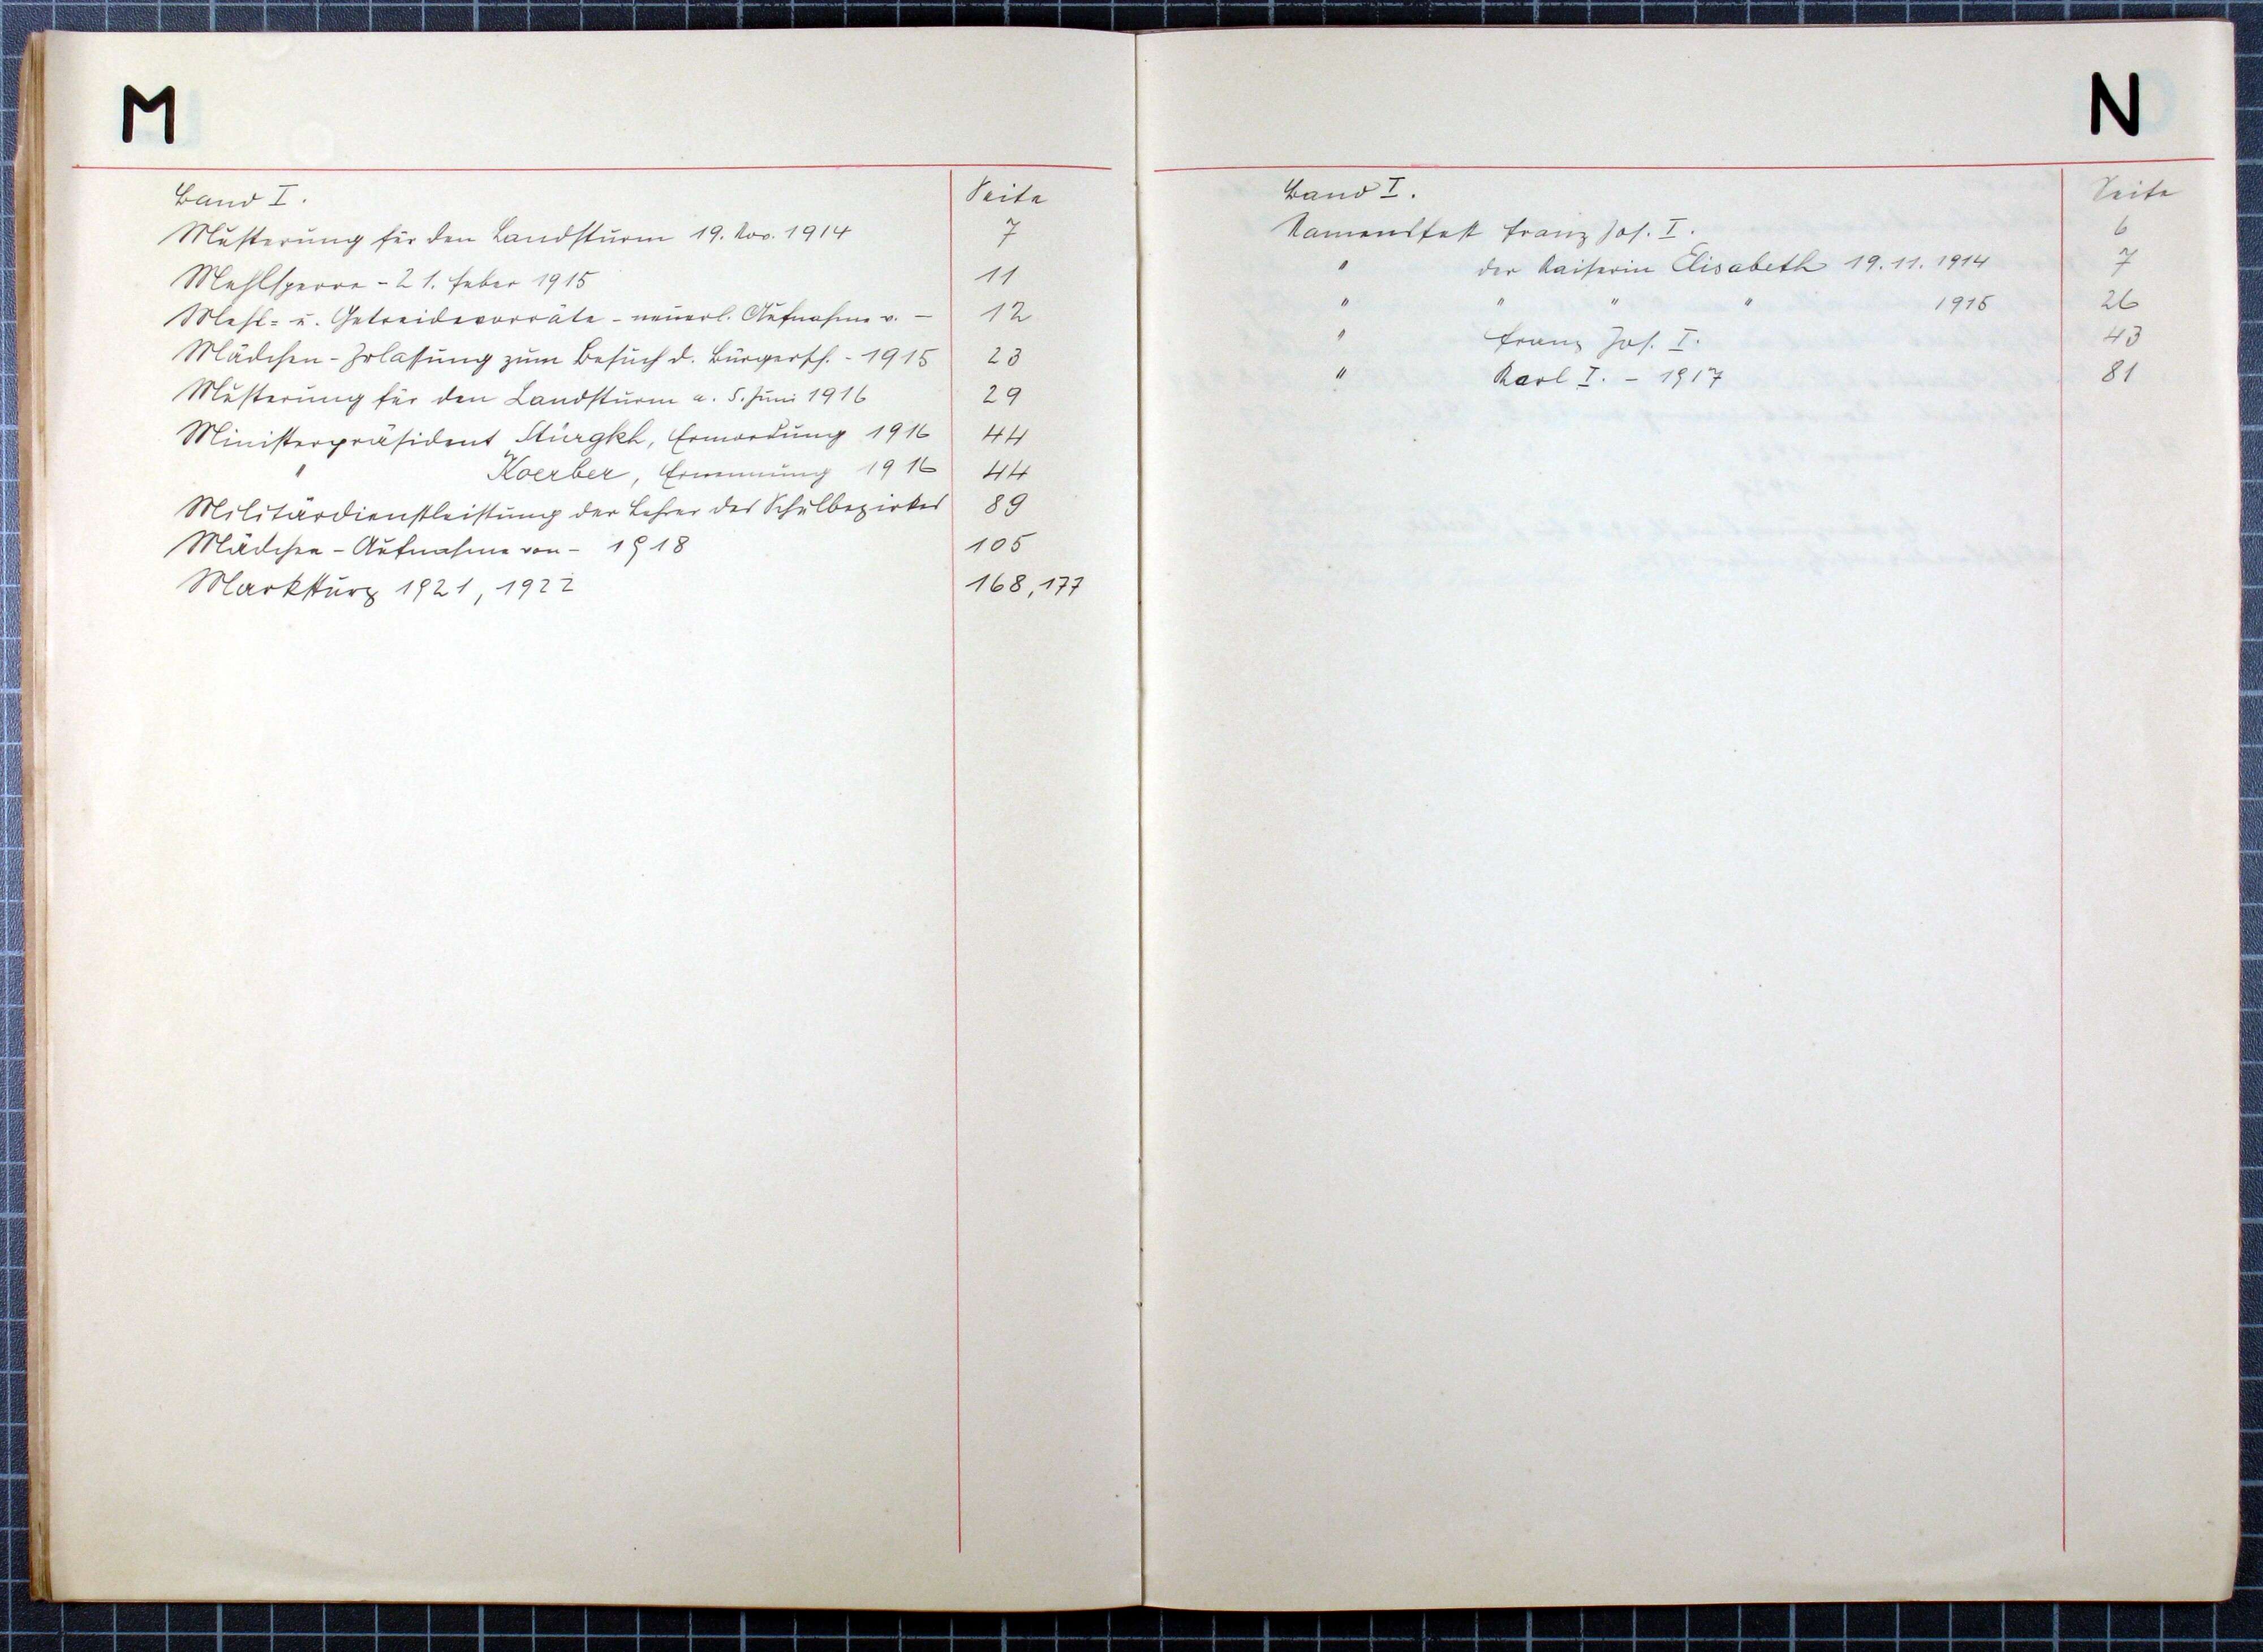 M
Band I. Seite
Musterung für den Landsturm 19. Nov. 1914 7
Mehlsperre - 21. Feber 1915 11
Mehl- u. Getreidevorräte - neuerl. Aufnahme v. - 12
Mädchen - Zulassung zum Besuch d. Bürgersch. - 1915 23
Musterung für den Landsturm a. 5. Juni 1916 29
Ministerpräsident Stürgkh, Ermordung 1916 44
" Koerber, Ernennung 1916 44
Militärdienstleistung der Lehrer des Schulbezirkes 89
Mädchen - Aufnahme von - 1918 105
Marksturz 1921, 1922 168, 177
N
Band I. Seite
Namensfest Franz Jos. I. 6
" der Kaiserin Elisabeth 19.11.1914 7
" " " " 1915 26
" Franz Jos. I. 43
" Karl I. - 1917 81